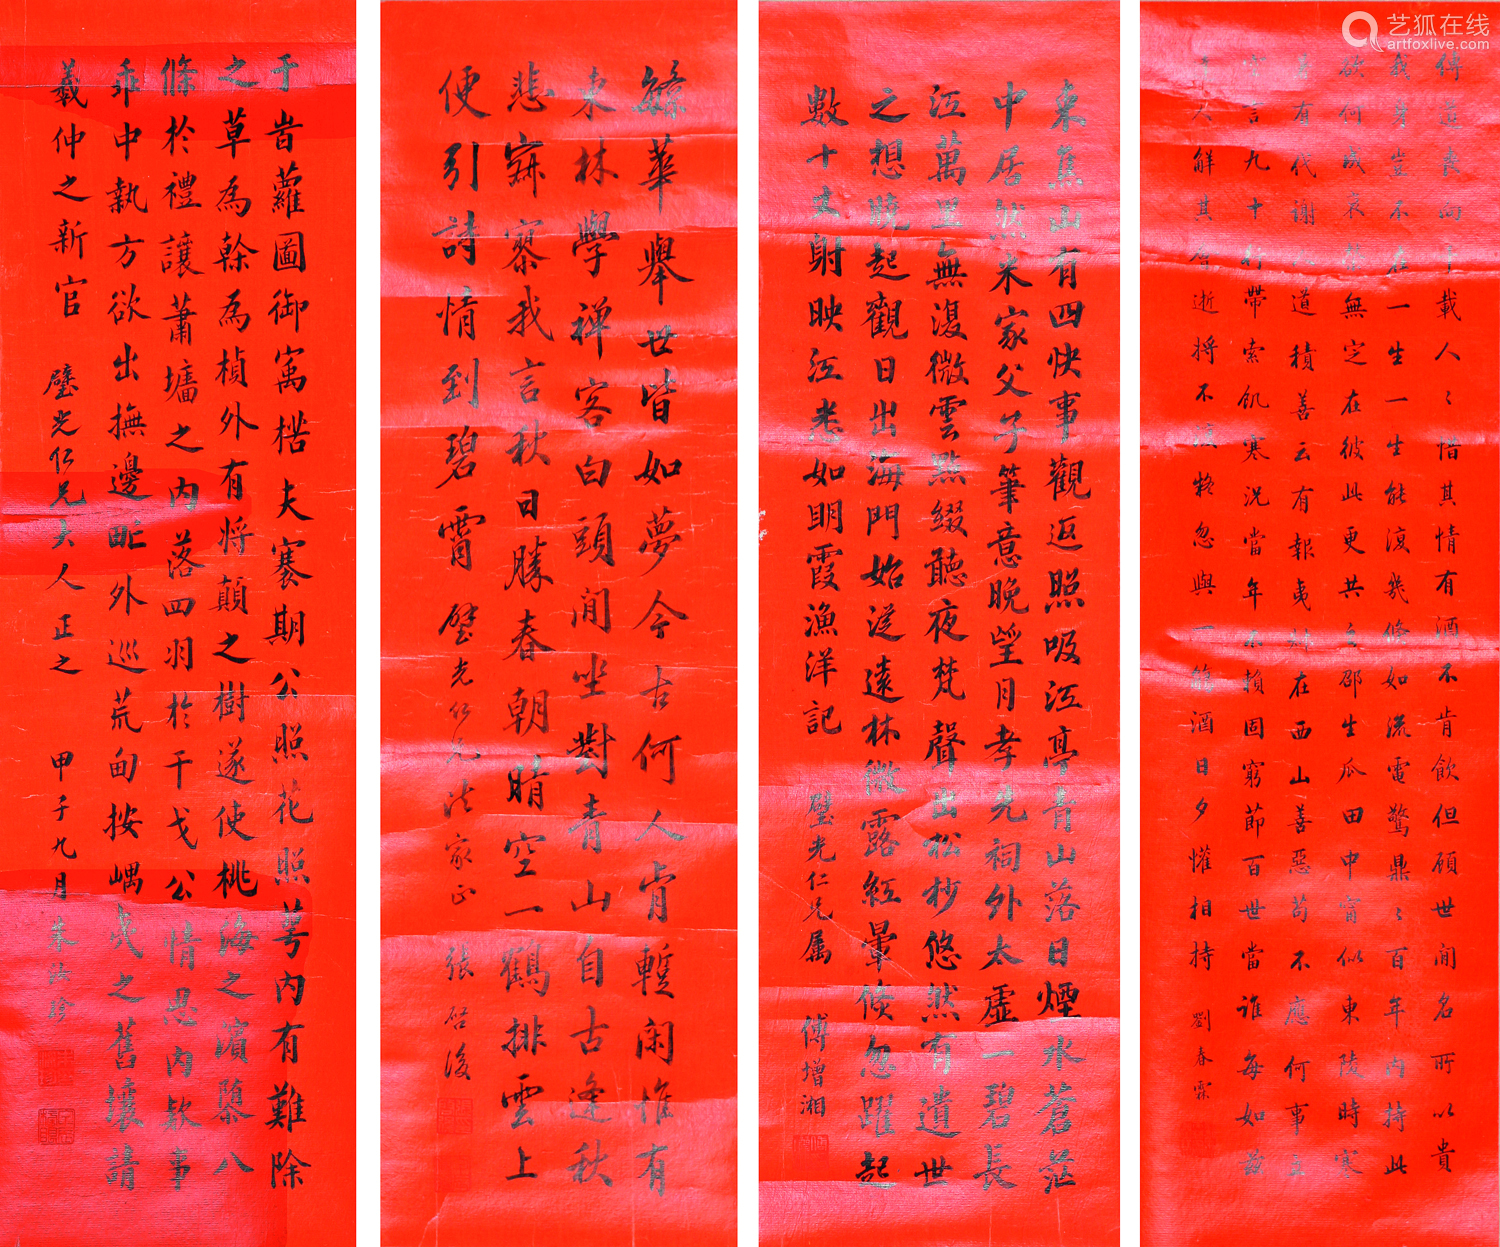 傳道喪向千載人〻惜其情有酒不肯飲但碩世間名所以貴
我身豈不在一生一生能復幾倏如流電驚鼎〻百年內持此
欲何成衰榮無定在彼此更共之邵生瓜田中甯似東陵時寒
暑有代謝人道積善云有報夷叔在西山善惡苟不應何事立
空言九十行帶索飢寒況當年不賴固窮節百世當誰每如茲
達人解其會逝將不復疑忽與一觴酒日夕懽相持 劉春霖
東焦山有四快事觀返照吸江亭青山落日煙水蒼茫
中居然米家父子筆意晚望月孝先祠外太虛一碧長
江萬里無復微雲點綴聽夜梵聲出松杪悠然有遺世
之想曉起觀日出海門始從遠林微露紅暈倏忽躍起
數十丈射映江悉如明霞漁洋記
璧光仁兄属 傅增湘
繇華舉世皆如夢今古何人肯暫閑惟有
東林學禅客白頭閒坐對青山自古逢秋
悲寂寥我言秋日勝春朝晴空一鶴排雲上
便引詩情到碧霄 璧光仁兄法家正 張啓後
于昔蘿圖御寓楛夫褰期公照花照萼內有難除
之草為榦為楨外有將顛之樹遂使桃海之濱隳八
條於禮讓蕭墻之內落四羽於干戈公情思內欵事
乖中執方欲出撫邊甿外巡荒甸按嵎夷之舊壤請
羲仲之新官 璧光仁兄大人正之 甲子九月朱汝珍
艺狐在线
artfoxlive.com